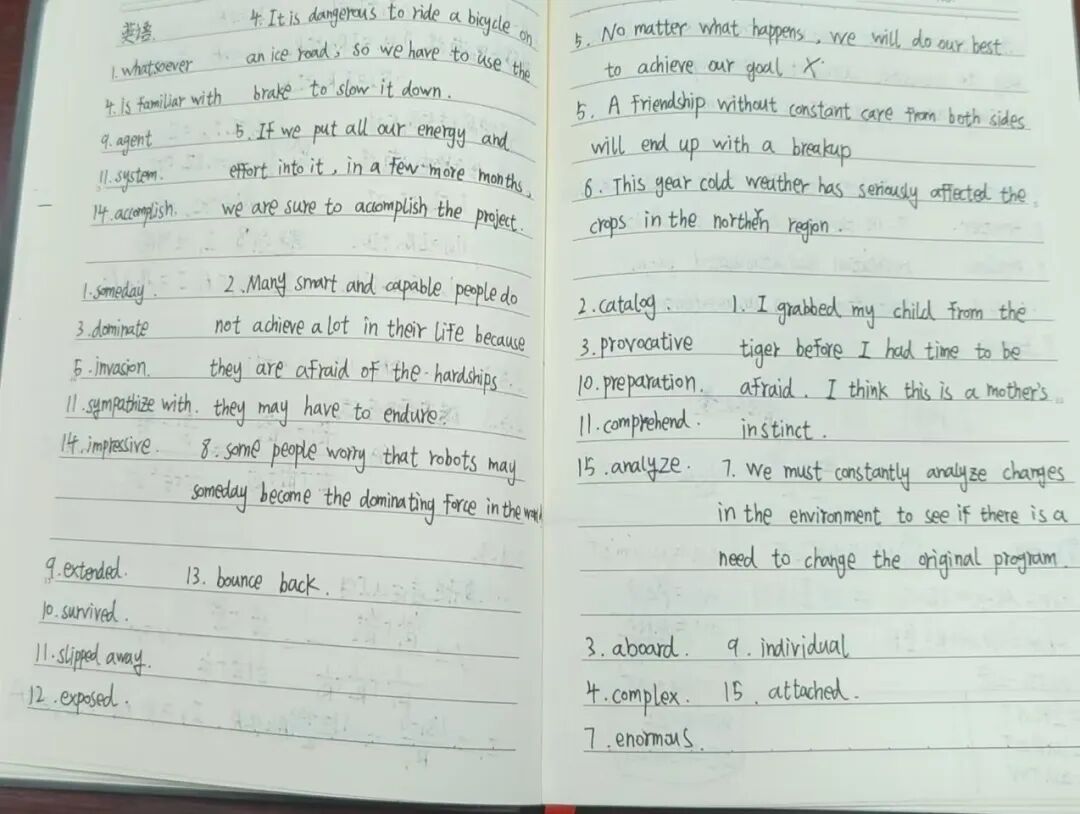 英语.
4. It is dangerous to ride a bicycle on
1. whatsoever
an ice road, so we have to use the
4. is familiar with
brake to slow it down.
9. agent
5. If we put all our energy and
11. system.
effort into it, in a few more months,
14. accomplish.
we are sure to accomplish the project.
1. someday.
2. Many smart and capable people do
3. dominate
not achieve a lot in their life because
5. invasion.
they are afraid of the hardships
11. sympathize with.
they may have to endure.
14. impressive.
8. some people worry that robots may
someday become the dominating force in the world
9. extended.
13. bounce back.
10. survived.
11. slipped away.
12. exposed.
5. No matter what happens, we will do our best
to achieve our goal. X
5. A friendship without constant care from both sides
will end up with a breakup
6. This year cold weather has seriously affected the
crops in the northern region.
2. catalog.
1. I grabbed my child from the
3. provocative
tiger before I had time to be
10. preparation.
afraid. I think this is a mother's
11. comprehend.
instinct.
15. analyze.
7. We must constantly analyze changes
in the environment to see if there is a
need to change the original program.
3. aboard.
9. individual
4. complex.
15. attached.
7. enormous.